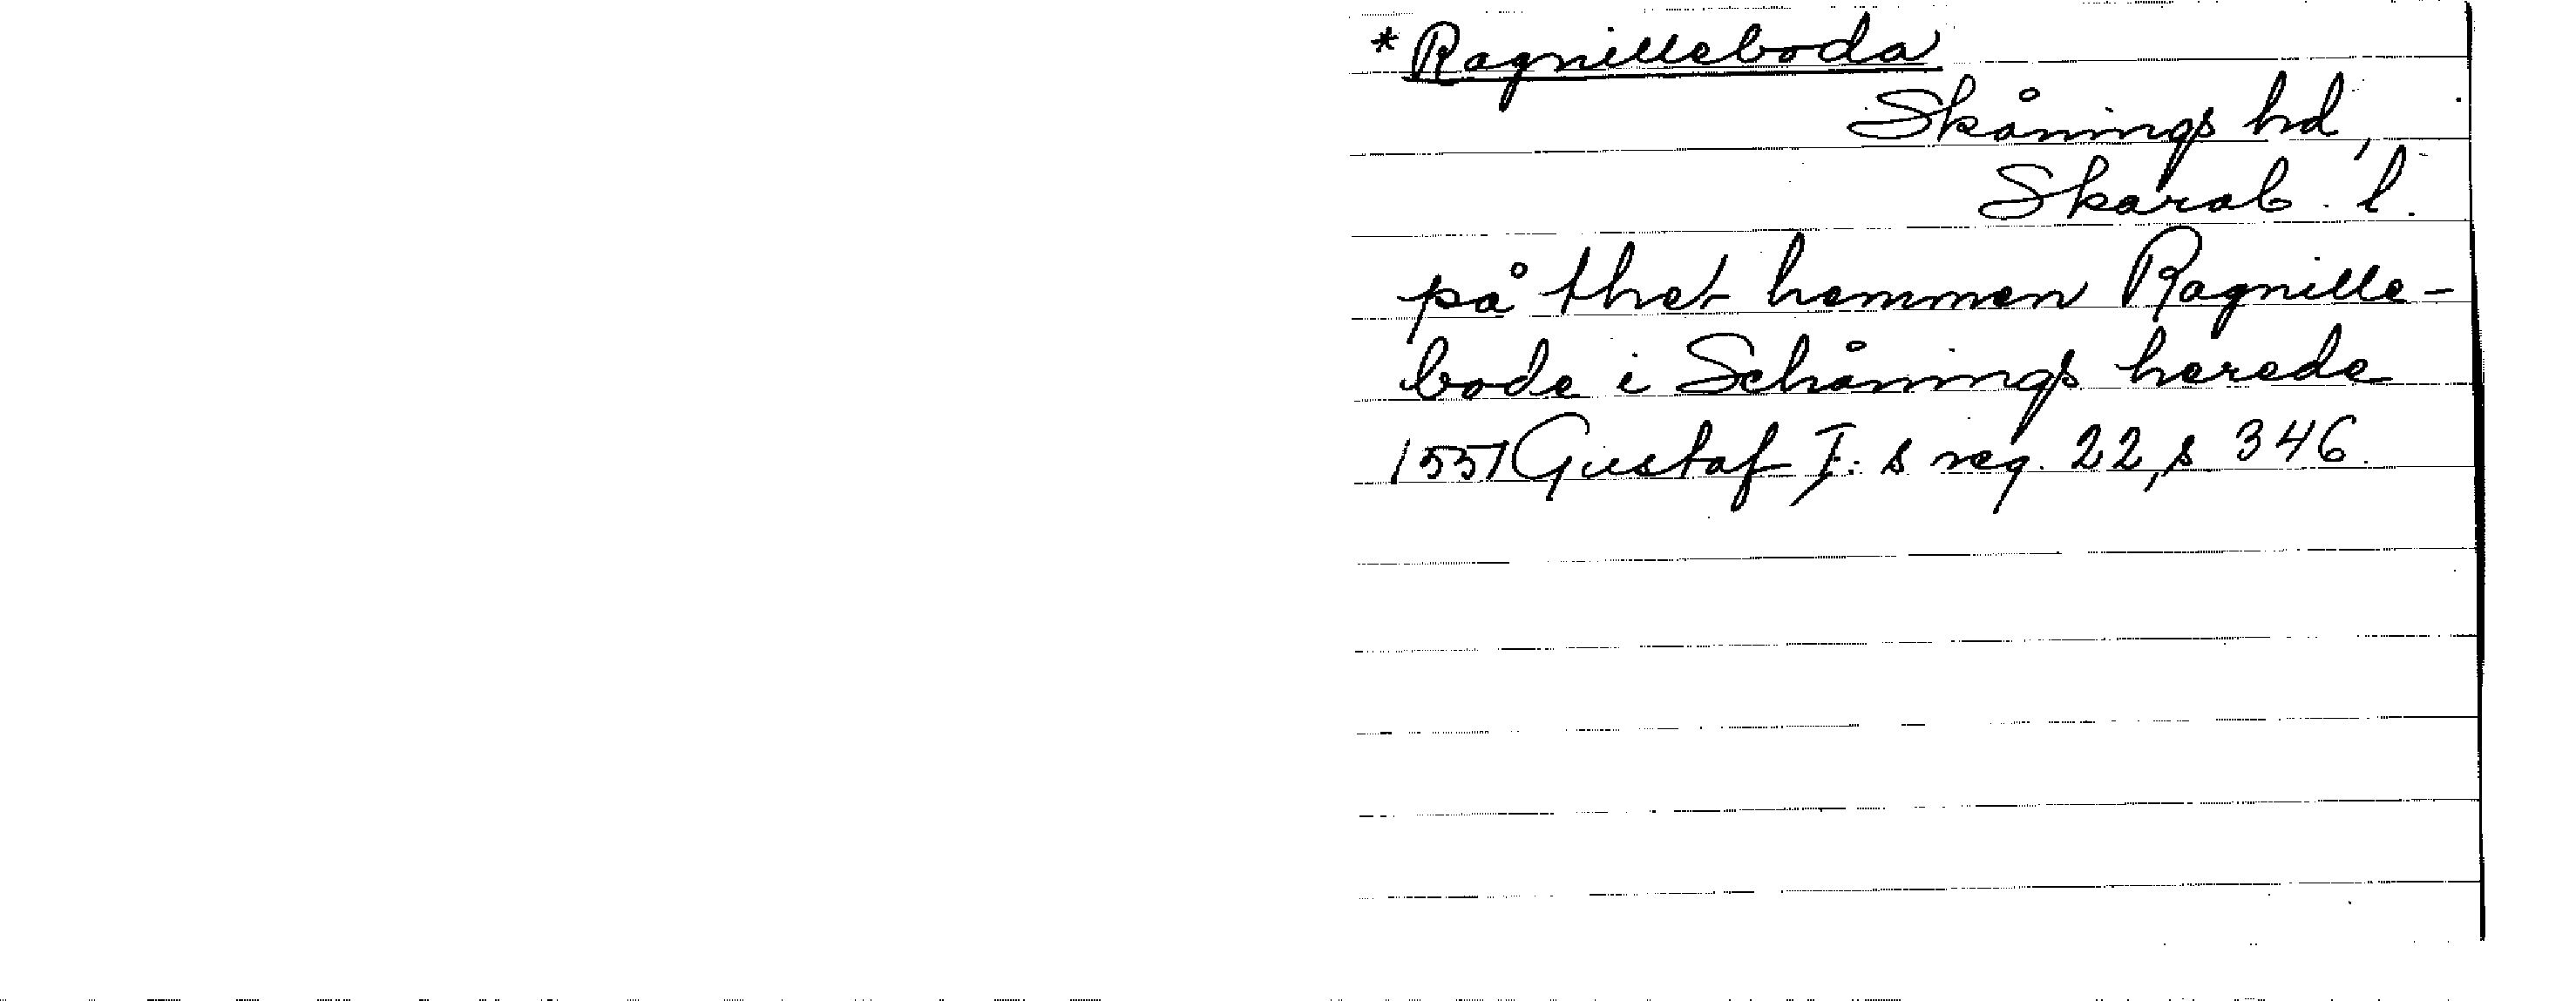 *Ragnilleboda
Skånings hd,
Skarab. l.
på thet hemmen Ragnille-
bode i Schånings herede
1551 Gustaf I:s reg. 22, s. 346.